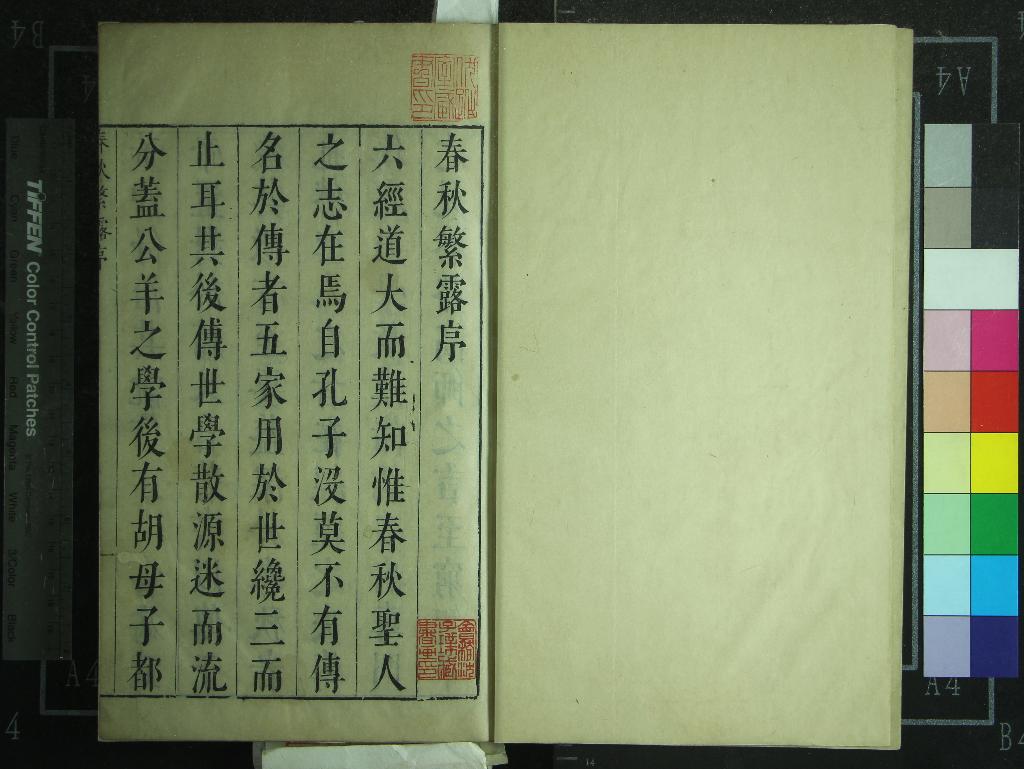 春秋繁露序
六經道大而難知惟春秋聖人
之志在焉自孔子沒莫不有傳
名於傳者五家用於世纔三而
止耳其後傳世學散源迷而流
分蓋公羊之學後有胡母子都
春秋繁露序
TIFFEN Color Control Patches
Blue Cyan Green Yellow Red Magenta White 3/Color Black
A4
A4
A4
B4